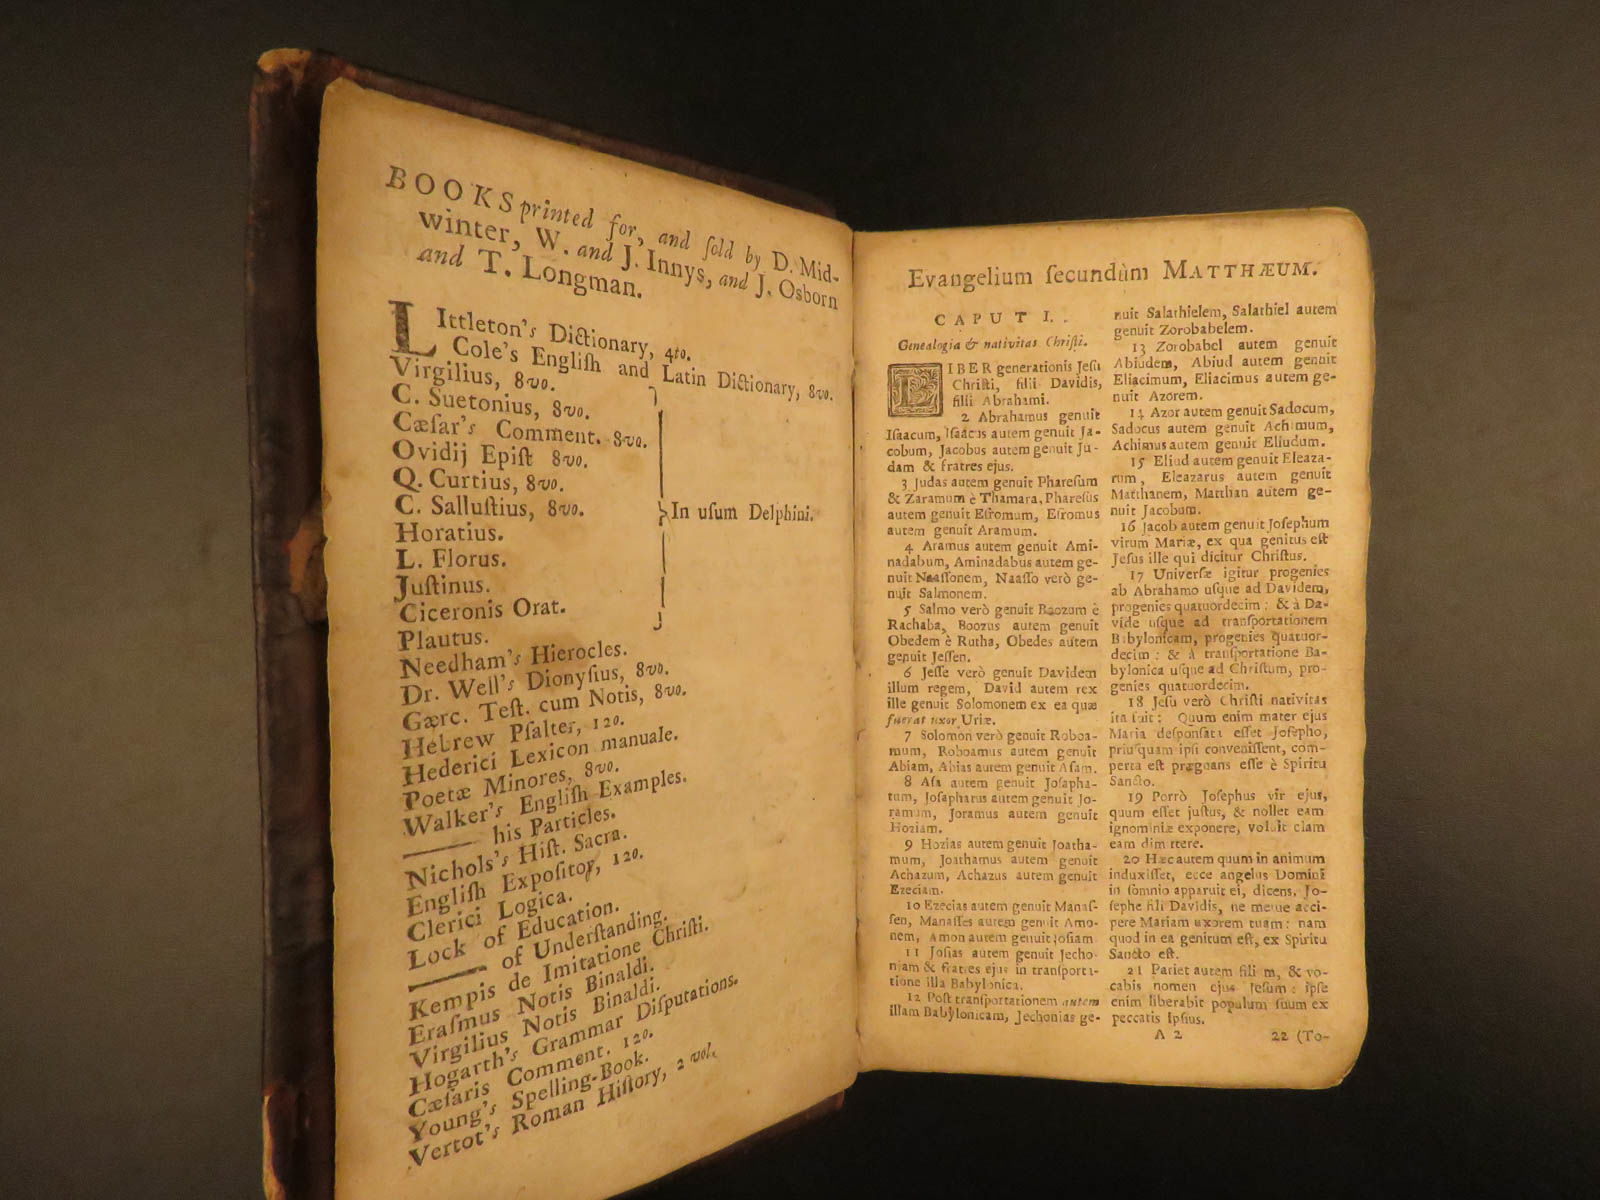 BOOKS printed for, and ſold by D. Mid-
winter, W. and J. Innys, and J. Osborn
and T. Longman.
LIttleton's Dictionary, 4to.
Cole's Engliſh and Latin Dictionary, 8vo.
Virgilius, 8vo.
C. Suetonius, 8vo.
Cæſar's Comment. 8vo.
Ovidij Epiſt 8vo.
Q. Curtius, 8vo.
C. Salluſtius, 8vo.
In uſum Delphini.
Horatius.
L. Florus.
Juſtinus.
Ciceronis Orat.
Plautus.
Needham's Hierocles.
Dr. Well's Dionyſius, 8vo.
Gærc. Teſt. cum Notis, 8vo.
Hebrew Pſalter, 12o.
Hederici Lexicon manuale.
Poetæ Minores, 8vo.
Walker's Engliſh Examples.
—— his Particles.
Nichols's Hiſt. Sacra.
Engliſh Expoſitor, 12o.
Clerici Logica.
Lock of Education.
—— of Underſtanding.
Kempis de Imitatione Chriſti.
Eraſmus Notis Binaldi.
Virgilius Notis Binaldi.
Hogarth's Grammar Diſputations.
Cæſaris Comment. 12o.
Young's Spelling-Book.
Vertot's Roman Hiſtory, 2 vol.
Evangelium ſecundùm MATTHÆUM.
CAPUT I.
Genealogia & nativitas Chriſti.
LIBER generationis Jeſu
Chriſti, filii Davidis,
filii Abrahami.
2 Abrahamus genuit
Iſaacum, Iſaacus autem genuit Ja-
cobum, Jacobus autem genuit Ju-
dam & fratres ejus.
3 Judas autem genuit Phareſum
& Zaramum è Thamara, Phareſus
autem genuit Eſromum, Eſromus
autem genuit Aramum.
4 Aramus autem genuit Ami-
nadabum, Aminadabus autem ge-
nuit Naaſſonem, Naaſſo verò ge-
nuit Salmonem.
5 Salmo verò genuit Boozum è
Rachaba, Boozus autem genuit
Obedem è Rutha, Obedes autem
genuit Jeſſen.
6 Jeſſe verò genuit Davidem
illum regem, David autem rex
ille genuit Solomonem ex ea quæ
fuerat uxor Uriæ.
7 Solomon verò genuit Roboa-
mum, Roboamus autem genuit
Abiam, Abias autem genuit Aſam.
8 Aſa autem genuit Joſapha-
tum, Joſaphatus autem genuit Jo-
ramum, Joramus autem genuit
Hoziam.
9 Hozias autem genuit Joatha-
mum, Joathamus autem genuit
Achazum, Achazus autem genuit
Ezeciam.
10 Ezecias autem genuit Manaſ-
ſen, Manaſſes autem genuit Amo-
nem, Amon autem genuit Joſiam
11 Joſias autem genuit Jecho-
niam & fratres ejus in tranſporta-
tione illa Babylonica.
12 Poſt tranſportationem autem
illam Babylonicam, Jechonias ge-
nuit Salathielem, Salathiel autem
genuit Zorobabelem.
13 Zorobabel autem genuit
Abiudem, Abiud autem genuit
Eliacimum, Eliacimus autem ge-
nuit Azorem.
14 Azor autem genuit Sadocum,
Sadocus autem genuit Achimum,
Achimus autem genuit Eliudum.
15 Eliud autem genuit Eleaza-
rum, Eleazarus autem genuit
Matthanem, Matthan autem ge-
nuit Jacobum.
16 Jacob autem genuit Joſephum
virum Mariæ, ex qua genitus eſt
Jeſus ille qui dicitur Chriſtus.
17 Univerſæ igitur progenies
ab Abrahamo uſque ad Davidem,
progenies quatuordecim: & à Da-
vide uſque ad tranſportationem
Babylonicam, progenies quatuor-
decim: & à tranſportatione Ba-
bylonica uſque ad Chriſtum, pro-
genies quatuordecim.
18 Jeſu verò Chriſti nativitas
ita fuit: Quum enim mater ejus
Maria deſponſata eſſet Joſepho,
priuſquam ipſi conveniſſent, com-
perta eſt prægnans eſſe è Spiritu
Sancto.
19 Porrò Joſephus vir ejus,
quum eſſet juſtus, & nollet eam
ignominiæ exponere, voluit clam
eam dimittere.
20 Hæc autem quum in animum
induxiſſet, ecce angelus Domini
in ſomnio apparuit ei, dicens, Jo-
ſephe fili Davidis, ne metue acci-
pere Mariam uxorem tuam: nam
quod in ea genitum eſt, ex Spiritu
Sancto eſt.
21 Pariet autem filium, & vo-
cabis nomen ejus Jeſum: ipſe
enim liberabit populum ſuum ex
peccatis ipſius.
A 2
22 (To-